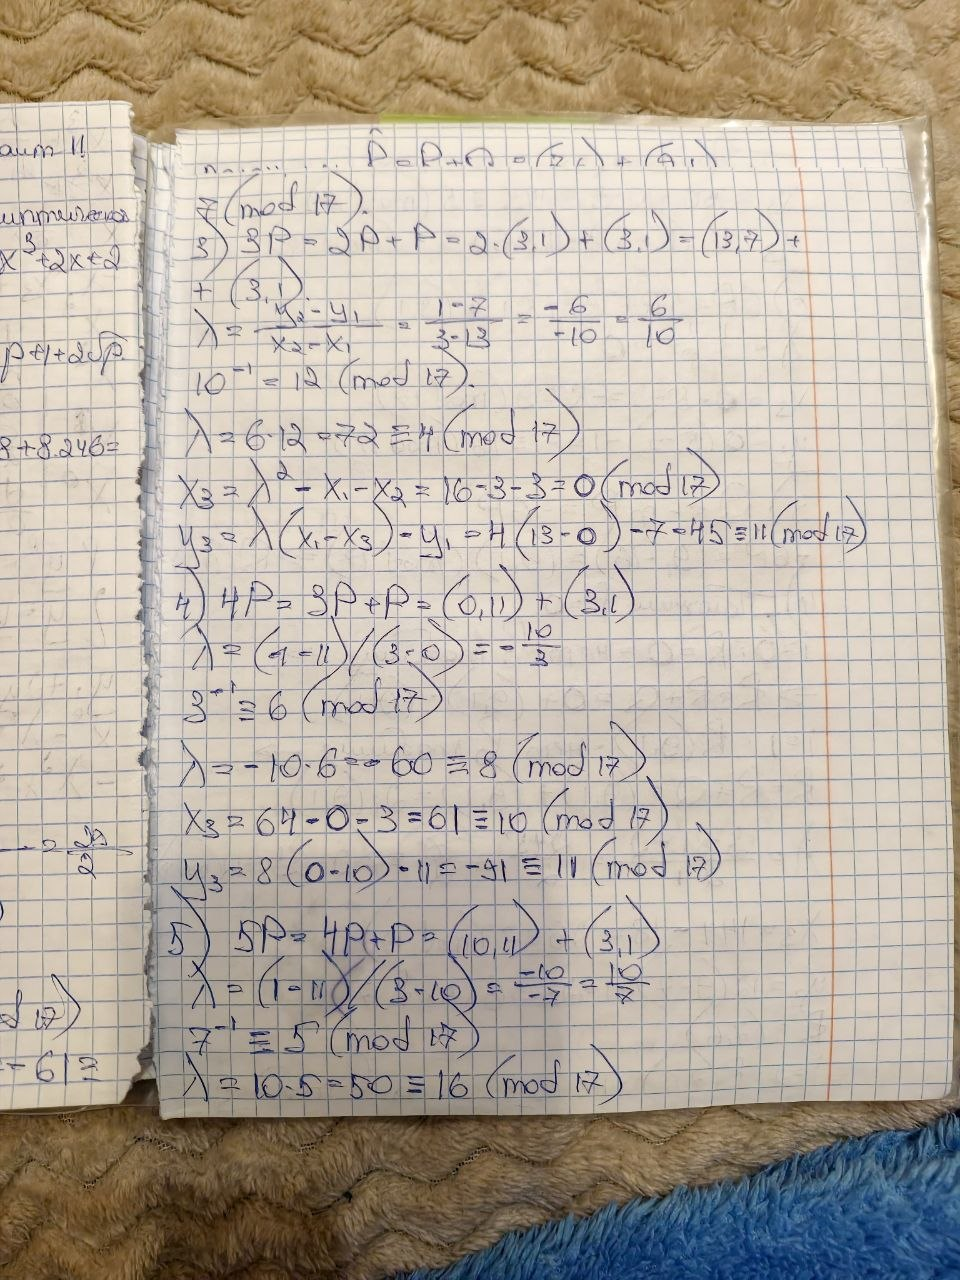 аит 11
x³+2x+2
p+1+2√p
8+8.246=
d 17)
- 61 ≡
7 (mod 17).
3) 3P = 2P + P = 2·(3,1) + (3,1) = (13,7) +
+ (3,1).
λ = (y₂-y₁)/(x₂-x₁) = (1-7)/(3-13) = -6/-10 = 6/10
10⁻¹ = 12 (mod 17).
λ = 6·12 = 72 ≡ 4 (mod 17)
x₃ = λ² - x₁ - x₂ = 16-3-3 = 0 (mod 17)
y₃ = λ(x₁-x₃) - y₁ = 4(13-0) - 7 = 45 ≡ 11 (mod 17)
4) 4P = 3P + P = (0,11) + (3,1)
λ = (1-11)/(3-0) = -10/3
3⁻¹ ≡ 6 (mod 17)
λ = -10·6 = -60 ≡ 8 (mod 17)
x₃ = 64-0-3 = 61 ≡ 10 (mod 17)
y₃ = 8(0-10) - 11 = -91 ≡ 11 (mod 17)
5) 5P = 4P + P = (10,11) + (3,1)
λ = (1-11)/(3-10) = -10/-7 = 10/7
7⁻¹ ≡ 5 (mod 17)
λ = 10·5 = 50 ≡ 16 (mod 17)